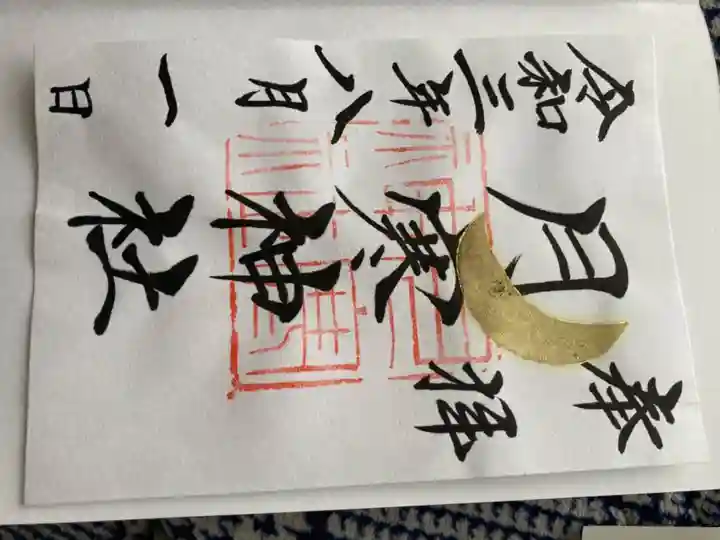 奉拝
月寒神社
令和三年八月一日